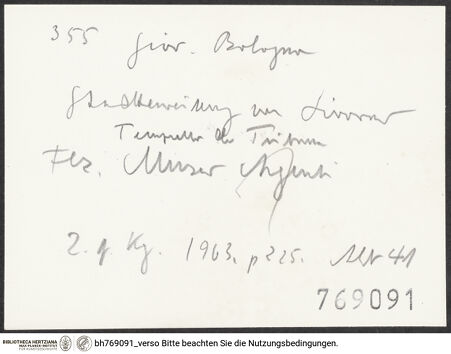 355 Giov. Bologna
Stadterweiterung von Livorno
Tempietto der Tribuna
Flz. Museo Argenti
Z. f. Kg. 1963, p 225. Alt 41
769091
BIBLIOTHECA HERTZIANA
MAX-PLANCK-INSTITUT
FÜR KUNSTGESCHICHTE
bh769091_verso Bitte beachten Sie die Nutzungsbedingungen.